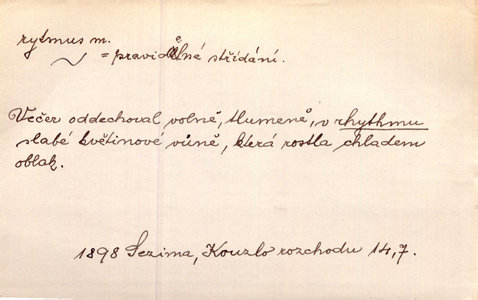 rytmus m.
= pravidelné střídání.
Večer oddechoval volně, tlumeně, v rhythmu
slabé květinové vůně, která rostla chladem
oblak.
1898 Sezima, Kouzlo rozchodu 14,7.